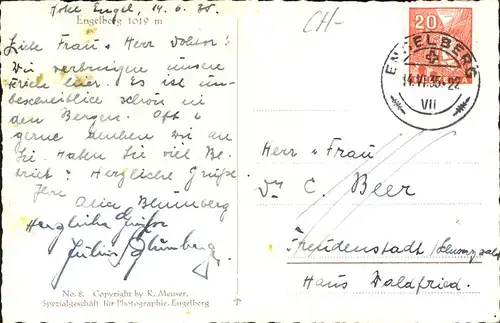 Engel, 14. 6. 35.
Engelberg 1019 m
Liebe Frau & Herr Doktor!
Wir verbringen unsere
Ferien hier. Es ist un-
beschreiblich schön in
den Bergen. Oft &
gerne denken wir an
Sie. Haben Sie viel Be-
trieb? Herzliche Grüße
Ihre
Alice Blumberg
Herzliche Grüße
Julius Blumberg
No. 8. Copyright by K. Meuser,
Spezialgeschäft für Photographie, Engelberg
CH-
20
ENGELBERG
14.VI.35-22
VII
Herr u Frau
Dr C. Beer
Freudenstadt
Haus Waldfried.